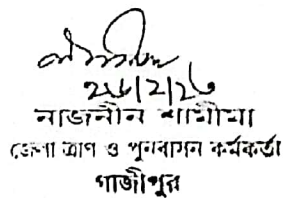 ২৬/২/২৩
নাজনীন শামীমা
জেলা ত্রাণ ও পুনবাসন কর্মকর্তা
গাজীপুর